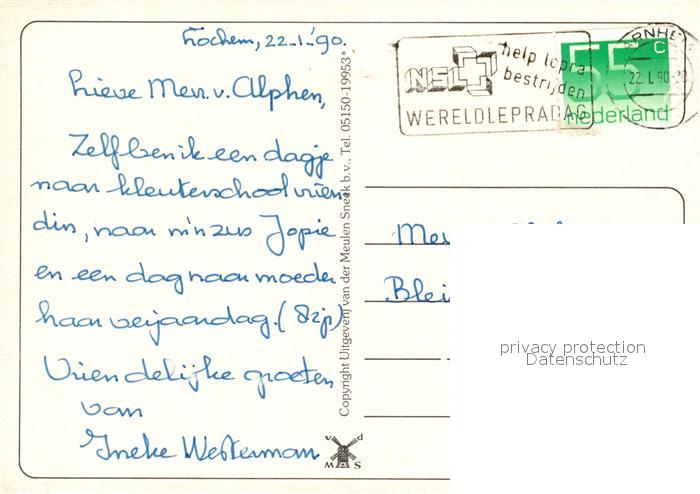 Lochem, 22-1-'90.
Lieve Mevr. v. Alphen,
Zelf ben ik een dagje
naar kleuterschoolvrien-
din, naar m'n zus Jopie
en een dag naar moeder
haar verjaardag. (82j)
Vriendelijke groeten
van
Ineke Westerman
Copyright Uitgeverij van der Meulen Sneek b.v., Tel. 05150-19953*
v d
M A S
NSL
help lepra
bestrijden
WERELDLEPRADAG
55 c
nederland
ARNHE
22.1.90
Me
Blei
privacy protection
Datenschutz